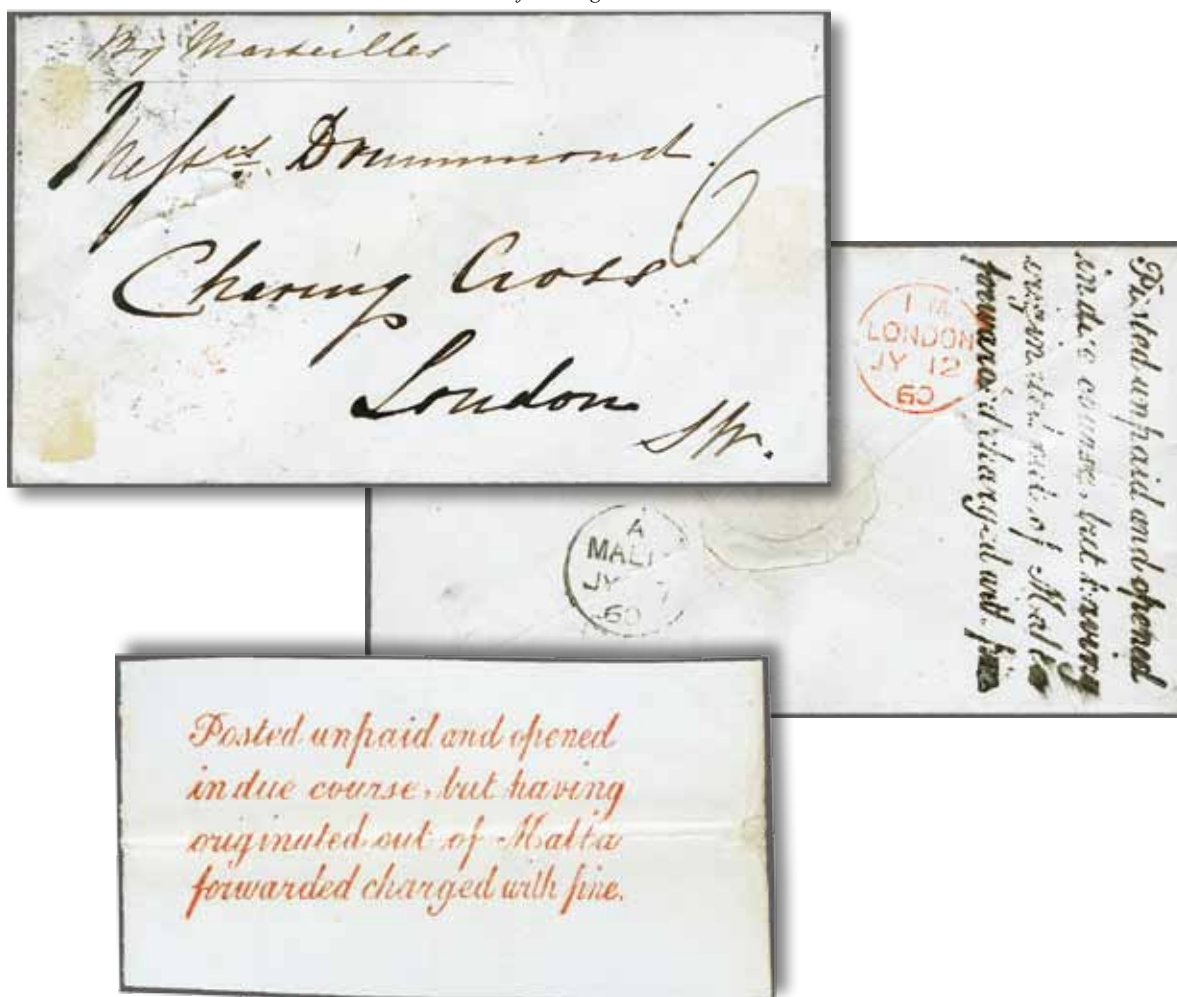 By Marseilles
Messrs Drummond
6
Charing Cross
London
SW.
1 M
LONDON
JY 12
60
Posted unpaid and opened
in due course, but having
originated out of Malta
forwarded charged with fine
A
MAL
JY 7
60
Posted unpaid and opened
in due course, but having
originated out of Malta
forwarded charged with fine.